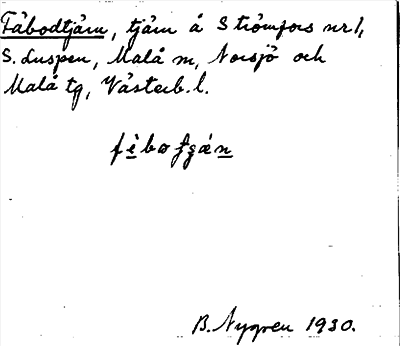 Fäbodtjärn, tjärn å Strömfors nr 1,
S. Luspen, Malå sn, Norsjö och
Malå tg, Västerb. l.
B. Nygren 1930.